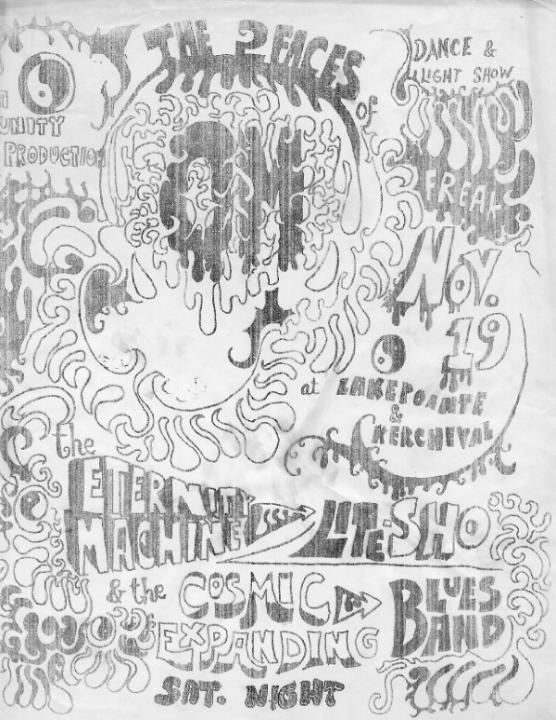 THE 2 FACES
of
OM
DANCE &
LIGHT SHOW
UNITY
PRODUCTION
FREAK
NOV.
19
at LAKEPOANTE
&
KERCHEVAL
the
ETERNITY
MACHINE LITE-SHO
& the COSMIC
EXPANDING
BLUES
BAND
SAT. NIGHT